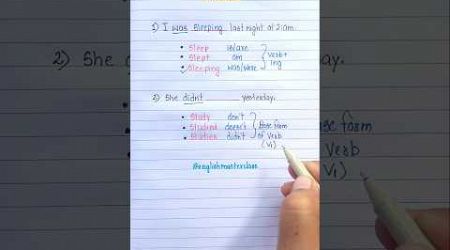 1) I was Sleeping last night at 2 am.
• Sleep is/are
• Slept am Verb +
• Sleeping was/were ing
2) She didn't ______ yesterday.
• Study don't
• Studied doesn't Base form
• Studies didn't of Verb
(V1)
@englishmasterclass
2) She
se form
Verb
V1)